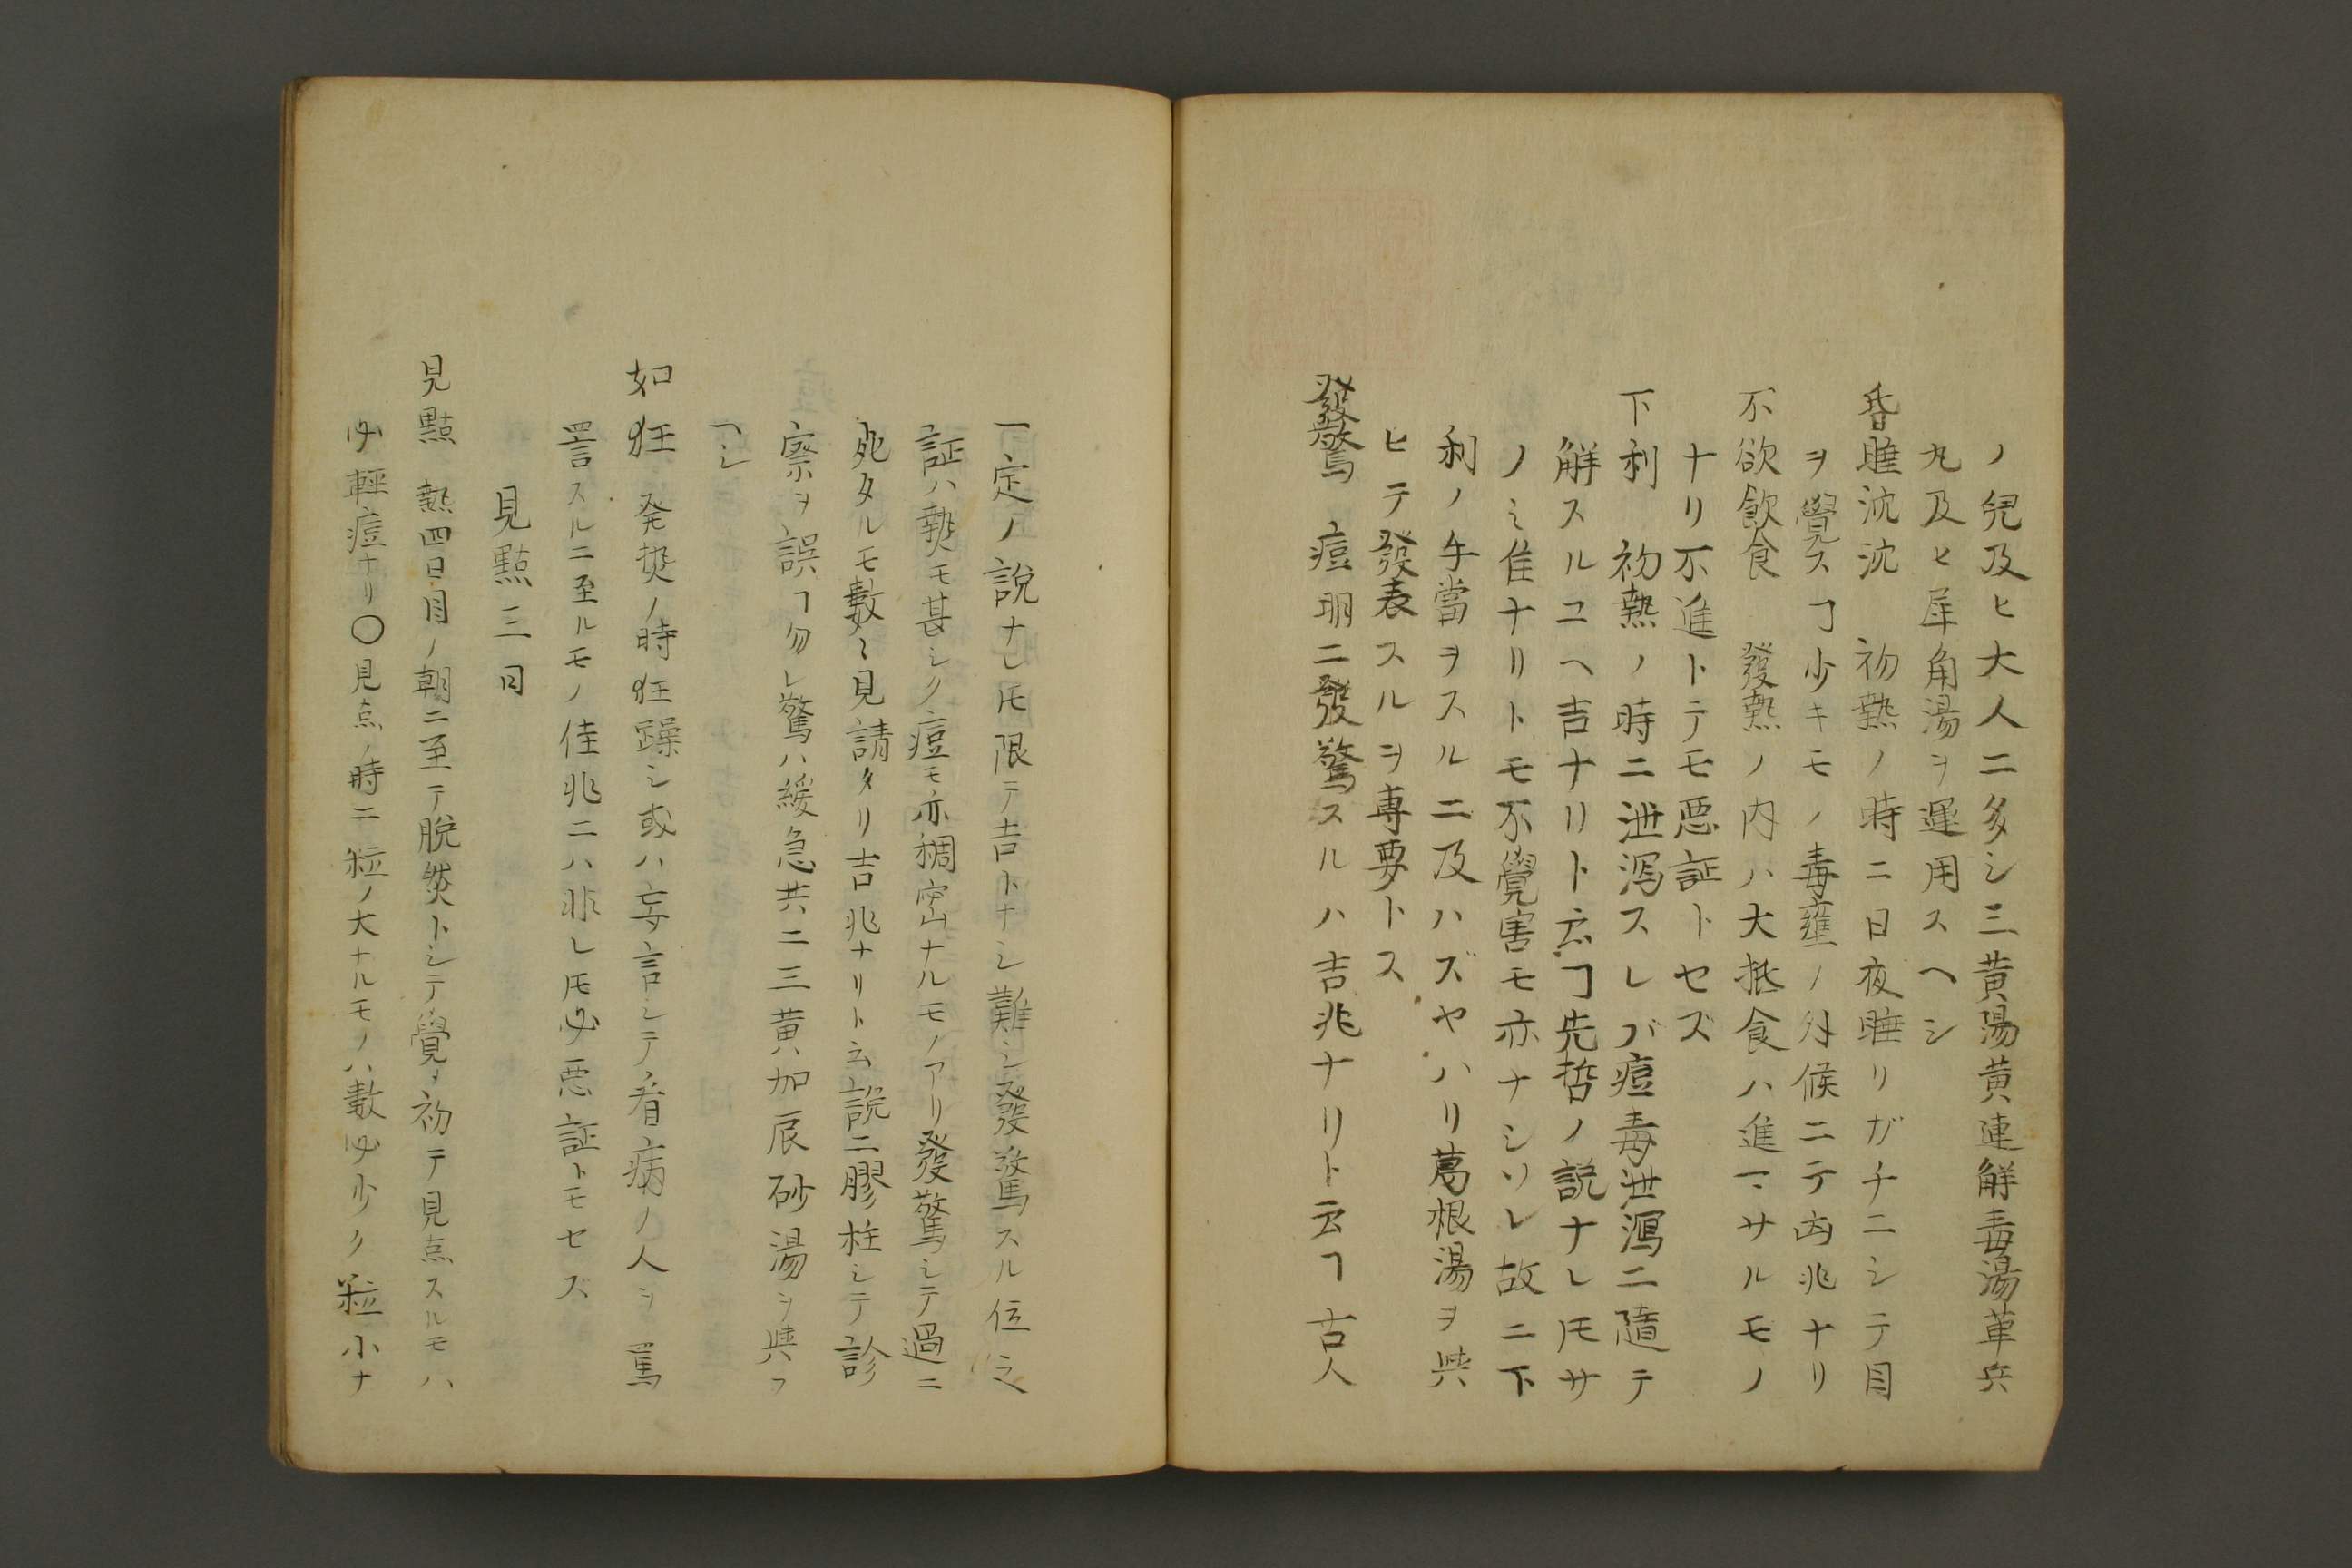 ノ兒及ヒ大人ニ多シ三黄湯黄連解毒湯革兵
丸及ヒ犀角湯ヲ運用スヘシ
昏睡沈沈　初熱ノ時ニ日夜睡リガチニシテ目
ヲ覺スヿ少キモノ毒壅ノ外候ニテ凶兆ナリ
不欲飲食　發熱ノ内ハ大抵食ハ進マサルモノ
ナリ不進トテモ悪証トセズ
下利　初熱ノ時ニ泄瀉スレバ痘毒泄瀉ニ隨テ
解スルユヘ吉ナリト云ヿ先哲ノ説ナレ𪜈サ
ノミ佳ナリトモ不覺害モ亦ナシソレ故ニ下
利ノ手當ヲスルニ及ハズヤハリ葛根湯ヲ與
ヒテ發表スルヲ専要トス
發驚　痘朋ニ發驚スルハ吉兆ナリト云ヿ古人
一定ノ説ナレ𪜈限テ吉トナシ難シ發驚スル位之
証ハ熱モ甚シク痘モ亦稠密ナルモノアリ發驚シテ過ニ
死タルモ數〻見請タリ吉兆ナリト云説ニ膠柱シテ診
察ヲ誤ヿ勿レ驚ハ緩急共ニ三黄加辰砂湯ヲ與フ
ヘシ
如狂　発熱ノ時狂躁シ或ハ妄言シテ看病ノ人ヲ罵
詈スルニ至ルモノ佳兆ニハ非レ𪜈必悪証トモセズ
見點三日
見點　熱四日目ノ朝ニ至テ脱然トシテ覺メ初テ見点スルモハ
必輕痘ナリ〇見点ノ時ニ粒ノ大ナルモノハ數必少ク粒小ナ